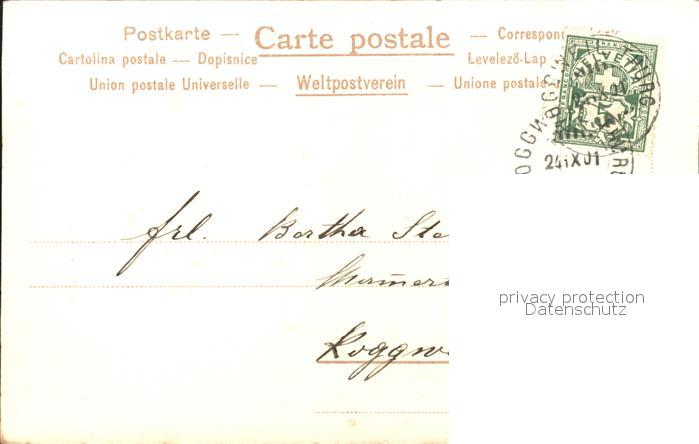 Postkarte — Carte postale — Correspon
Cartolina postale — Dopisnice Levelező-Lap
Union postale Universelle — Weltpostverein — Unione postale
HELVETIA
24 IX 01
frl. Bertha Ste
Roggw
privacy protection
Datenschutz